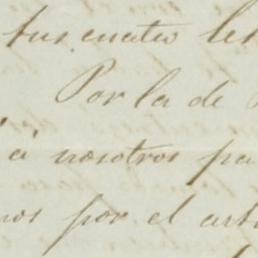 tus cuatro le
Por la de
á nosotros pa
nos por el art